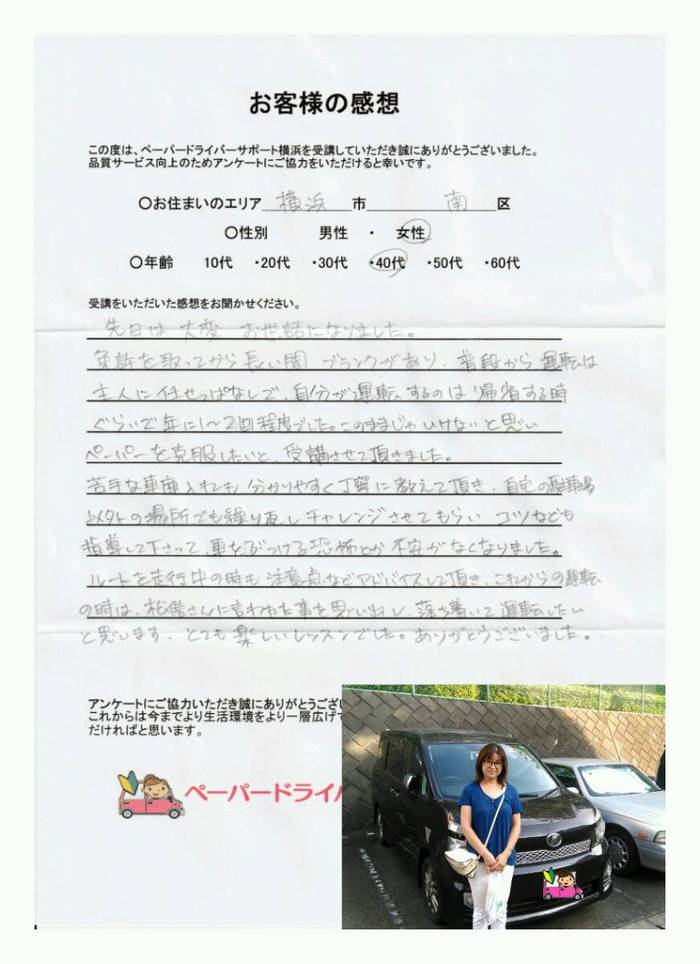 お客様の感想
この度は、ペーパードライバーサポート横浜を受講していただき誠にありがとうございました。
品質サービス向上のためアンケートにご協力をいただけると幸いです。
〇お住まいのエリア 横浜 市 南 区
〇性別 男性 ・ 女性
〇年齢 10代 ・20代 ・30代 ・40代 ・50代 ・60代
受講をいただいた感想をお聞かせください。
先日は大変 お世話になりました。
免許を取ってから長い間 ブランクがあり、普段から運転は
主人に任せっぱなしで、自分が運転するのは帰省する時
ぐらいで年に1〜2回程度でした。このままじゃいけないと思い
ペーパーを克服したいと、受講させて頂きました。
苦手な車庫入れも分かりやすく丁寧に教えて頂き、自宅の駐車場
以外の場所でも繰り返しチャレンジさせてもらい コツなども
指導して下さって、車をぶつける恐怖とか不安がなくなりました。
ルートを走行中の時も注意点などアドバイスして頂き、これからの運転
の時は、さんに言われた事を思い出し、落ち着いて運転したい
と思います。とても楽しいレッスンでした。ありがとうございました。
アンケートにご協力いただき誠にありがとうござい
これからは今までより生活環境をより一層広げて
だければと思います。
ペーパードライバ